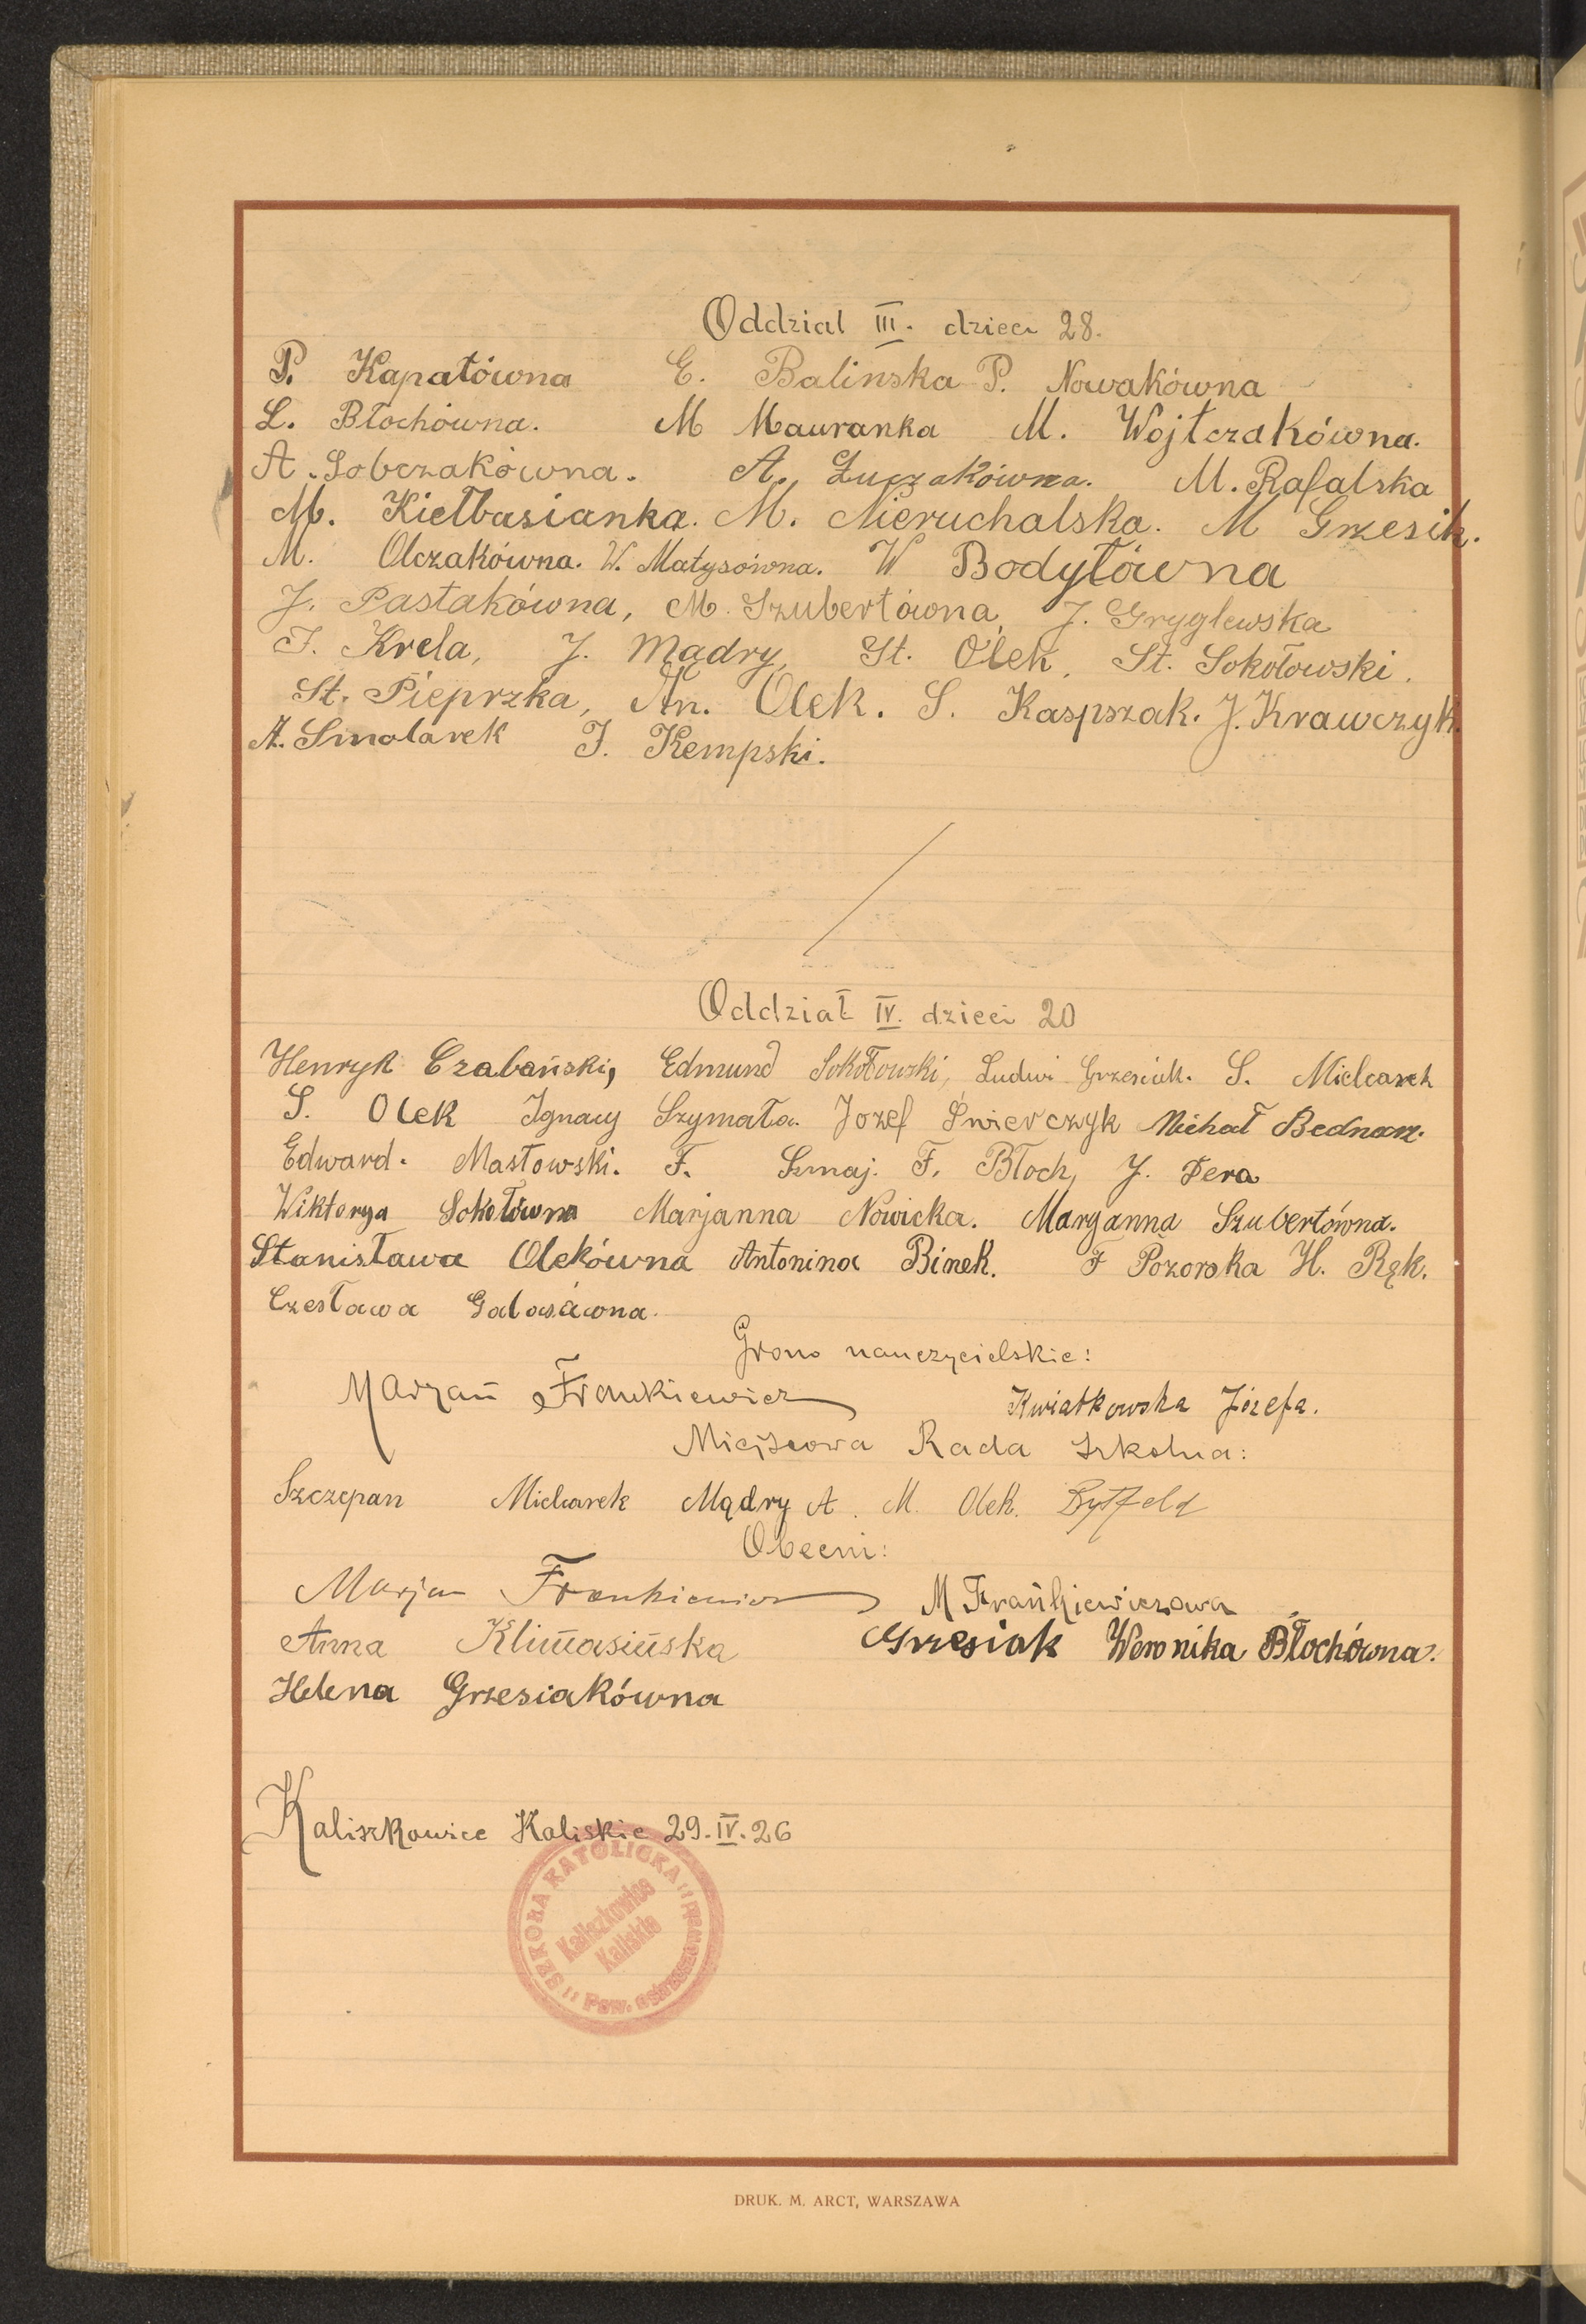 Oddział III. dzieci 28.
P. Kapałówna E. Balinska P. Nowakówna
L. Błochówna. M Mauranka M. Wojtczakówna.
A. Sobczakówna. A. Łuczakówna. M. Rafalska
M. Kiełbasianka. M. Nieruchalska. M Grzesik.
M. Olczakówna. W. Matysówna. W Bodyłówna
J. Pastakówna, M. Szubertówna, J. Gryglewska
F. Krela, J. Mądry, St. Olek, St. Sokołowski.
St. Pieprzka, An. Olek. S. Kaspszak. J. Krawczyk.
A. Smolarek J. Kempski.
Oddział IV. dzieci 20
Henryk Czabański, Edmund Sokołowski, Ludwi Grzesiak. S. Mielcarek
S. Olek Ignacy Szymała. Jozef Świerczyk Michał Bednarz.
Edward. Masłowski. F. Szmaj. F. Błoch, J. Dera
Wiktorya Sokołówna Marjanna Nowicka. Maryanna Szubertówna.
Stanisława Olekówna Antonina Binek. F Pozorska H. Ręk.
Czesława Galasówna.
Grono nauczycielskie:
Marjan Frankiewicz Kwiatkowska Józefa.
Miejscowa Rada Szkolna:
Szczepan Mielcarek Mądry A. M. Olek.
Obecni:
Marjan Frankiewicz M Frankiewiczowa
Anna Klimasińska Grzesiak Weronika Błochówna.
Helena Grzesiakówna
Kaliszkowice Kaliskie 29.IV.26
SZKOŁA KATOLICKA
Kaliszkowice
Kaliskie
Pow. Ostrzeszowski
DRUK. M. ARCT, WARSZAWA